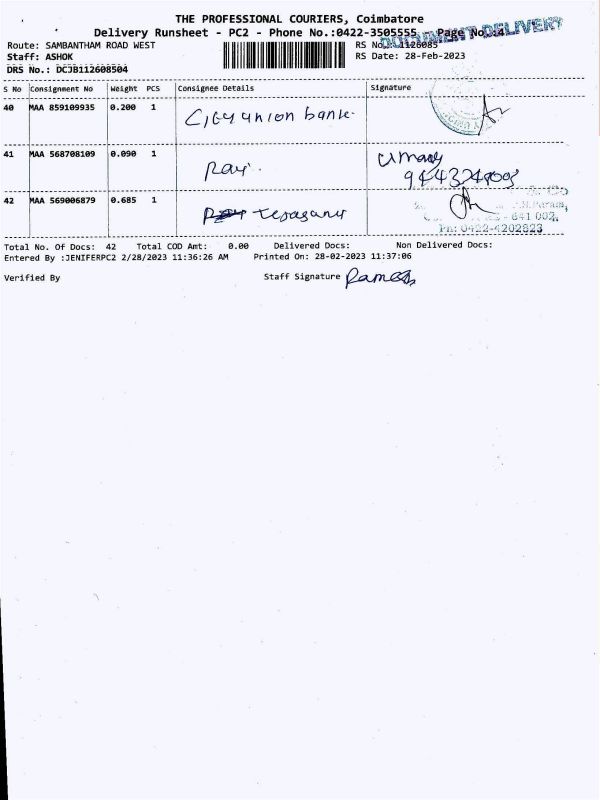 THE PROFESSIONAL COURIERS, Coimbatore
Delivery Runsheet - PC2 - Phone No.:0422-3505555 Page No.:4
DOCUMENT DELIVERY
Route: SAMBANTHAM ROAD WEST RS No.:1126085
Staff: ASHOK RS Date: 28-Feb-2023
DRS No.: DCJB112608504
S No Consignment No Weight PCS Consignee Details Signature
40 MAA 859109935 0.200 1 City union bank.
41 MAA 568708109 0.090 1 Ravi.
9443274808
42 MAA 569006879 0.685 1
- 641 002,
Ph: 0422-4202823
Total No. Of Docs: 42 Total COD Amt: 0.00 Delivered Docs: Non Delivered Docs:
Entered By :JENIFERPC2 2/28/2023 11:36:26 AM Printed On: 28-02-2023 11:37:06
Verified By Staff Signature Ramesh